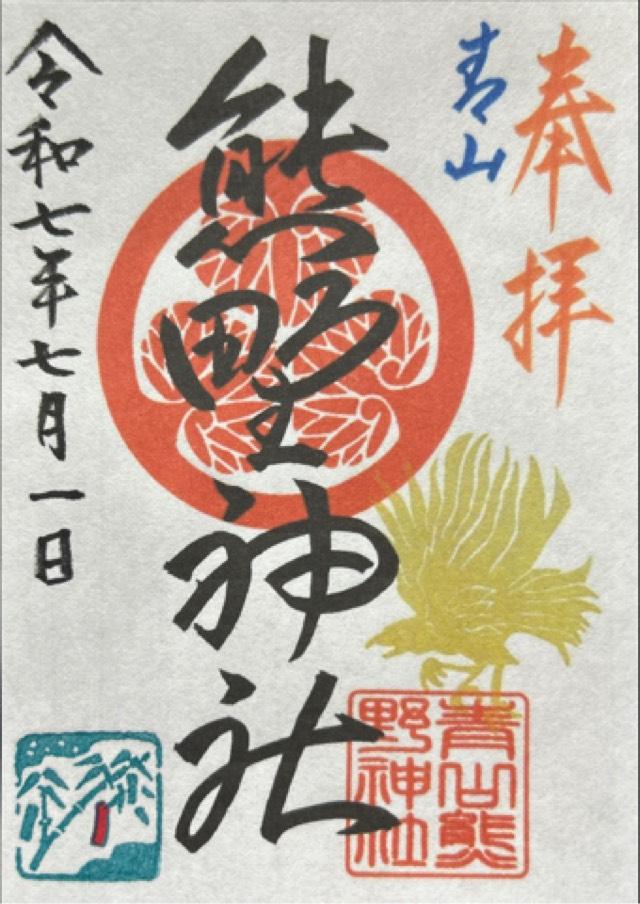 奉拝
青山
熊野神社
令和七年七月一日
青山熊
野神社